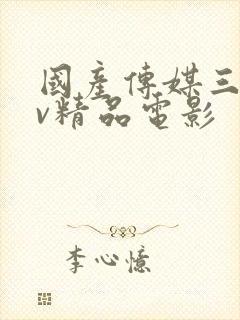 國產傳媒三
v精品電影
李心憶